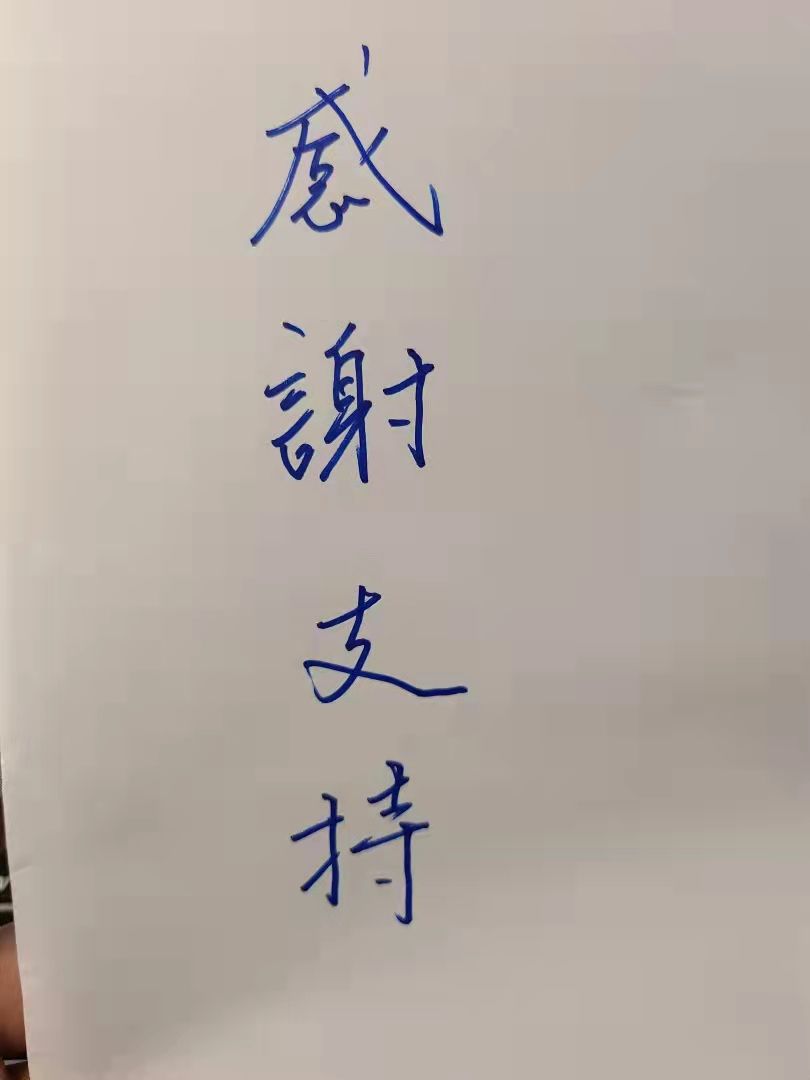 感謝支持